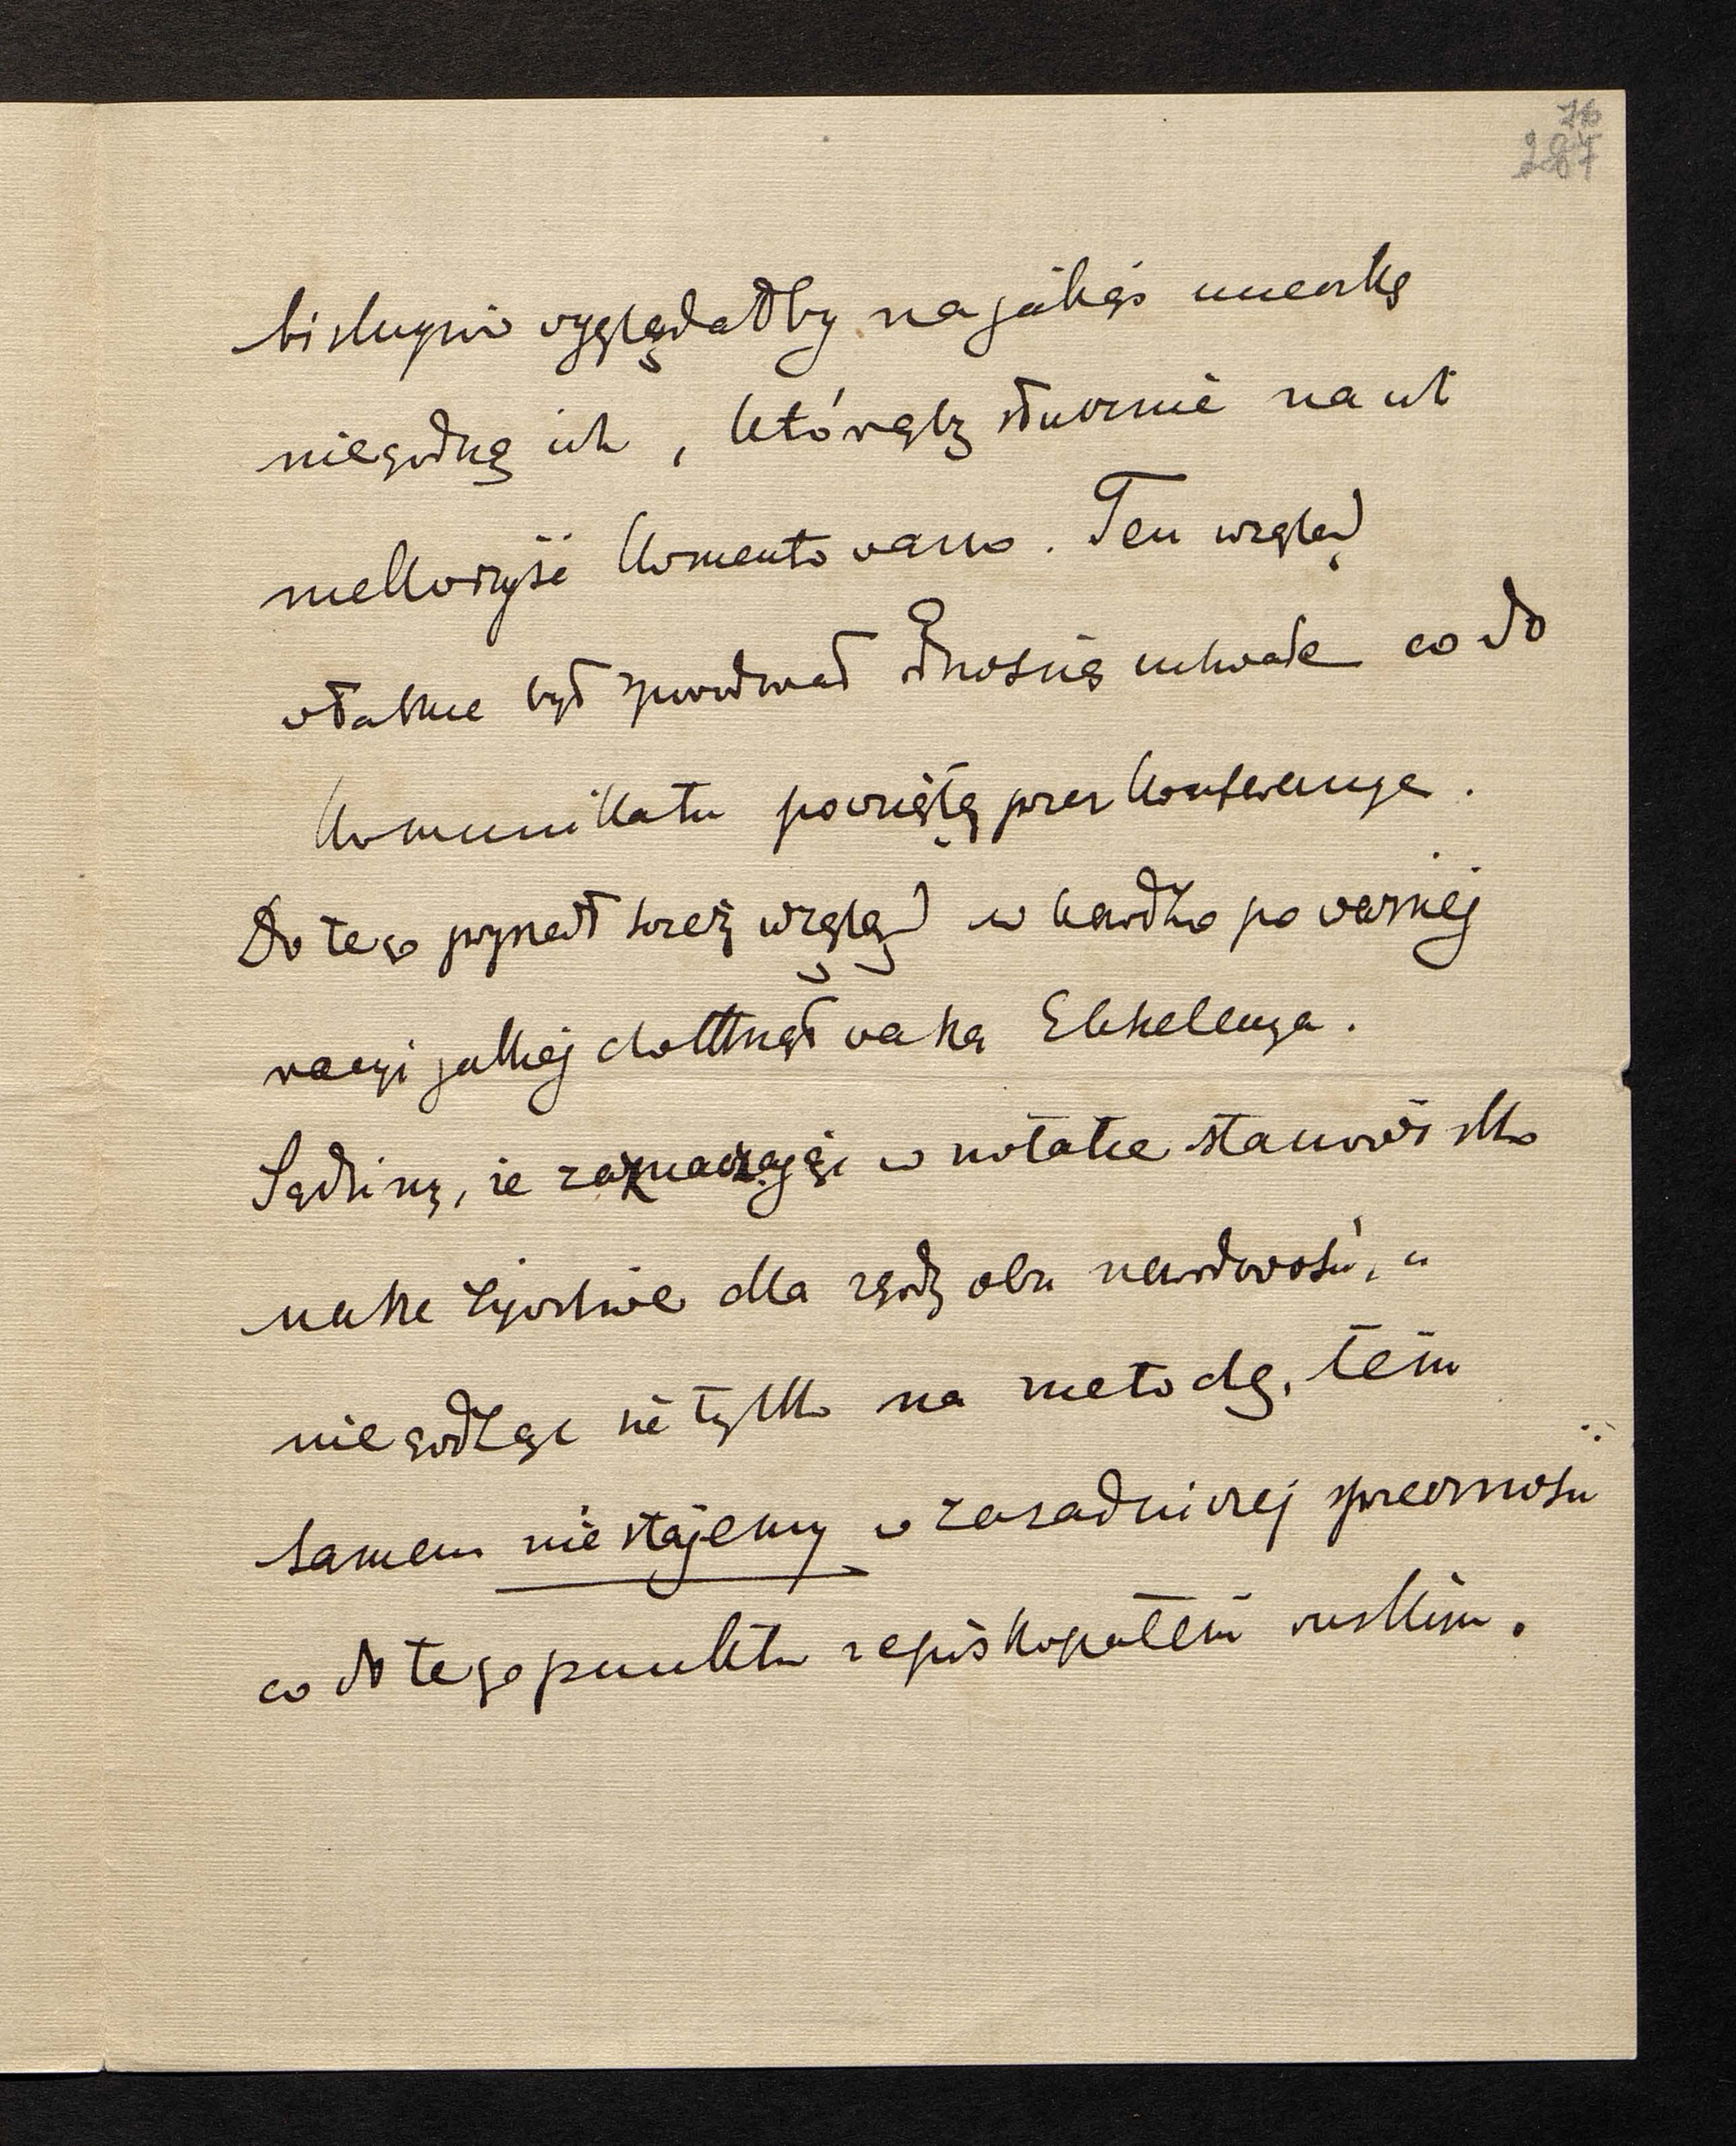 76
287
biskupów wyglądałby na jakąś ucieczkę
niegodną ich, którąby słusznie na ich
niekorzyść komentowano. Ten wzgląd
właśnie był spowodował odnośną uchwałę co do
komunikatu powziętą przez konferencyę.
Do tego przyszedł świeży wzgląd w bardzo poważnej
racyi jakiej dotknął Wasza Ekscelencya.
Sądzimy, że zaznaczając w notatce stanowisko
nasze życzliwe dla zgody obu narodowości, a
nie godząc się tylko na metodę, tem
samem nie stajemy w zasadniczej sprzeczności
co do tego punktu z episkopatem ruskim.